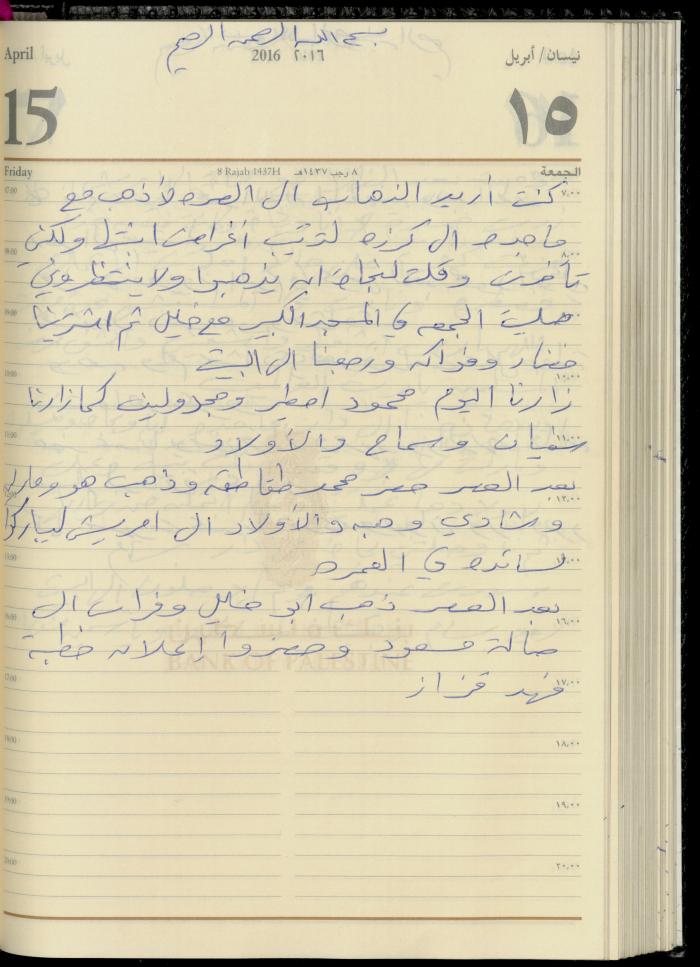 بسم الله الرحمن الرحيم
April 2016 ٢٠١٦ نيسان/أبريل
15 ١٥
Friday 8 Rajab 1437H ٨ رجب ١٤٣٧هـ الجمعة
07:00 كنت أريد الذهاب الى العمره لأذهب مع ٧,٠٠
ماجده الى كرزه لترتيب أغراضنا ولكني
08:00 تأخرت وقلت لنجاة ان يذهبوا ولا ينتظروني ٨,٠٠
09:00 صليت الجمعه في المسجد الكبير مع خليل ثم اشترينا
خضار وفواكه ورجعنا الى البيت
10:00 زارنا اليوم محمود اصطير ومجدولين كما زارنا ١٠,٠٠
11:00 سفيان وسماح والأولاد ١١,٠٠
بعد العصر حضر محمد طقاطقه وذهب هو
١٢,٠٠
وشادي وهبه والأولاد الى امريش ليباركوا
13:00 لسائده في العمره
بعد العصر ذهب ابو خليل وفراس الى
16:00 صالة مسعود وحضروا إعلان خطبة ١٦,٠٠
بنك فلسطين
BANK OF PALESTINE
17:00 فهد قزاز ١٧,٠٠
18:00 ١٨,٠٠
19:00 ١٩,٠٠
20:00 ٢٠,٠٠